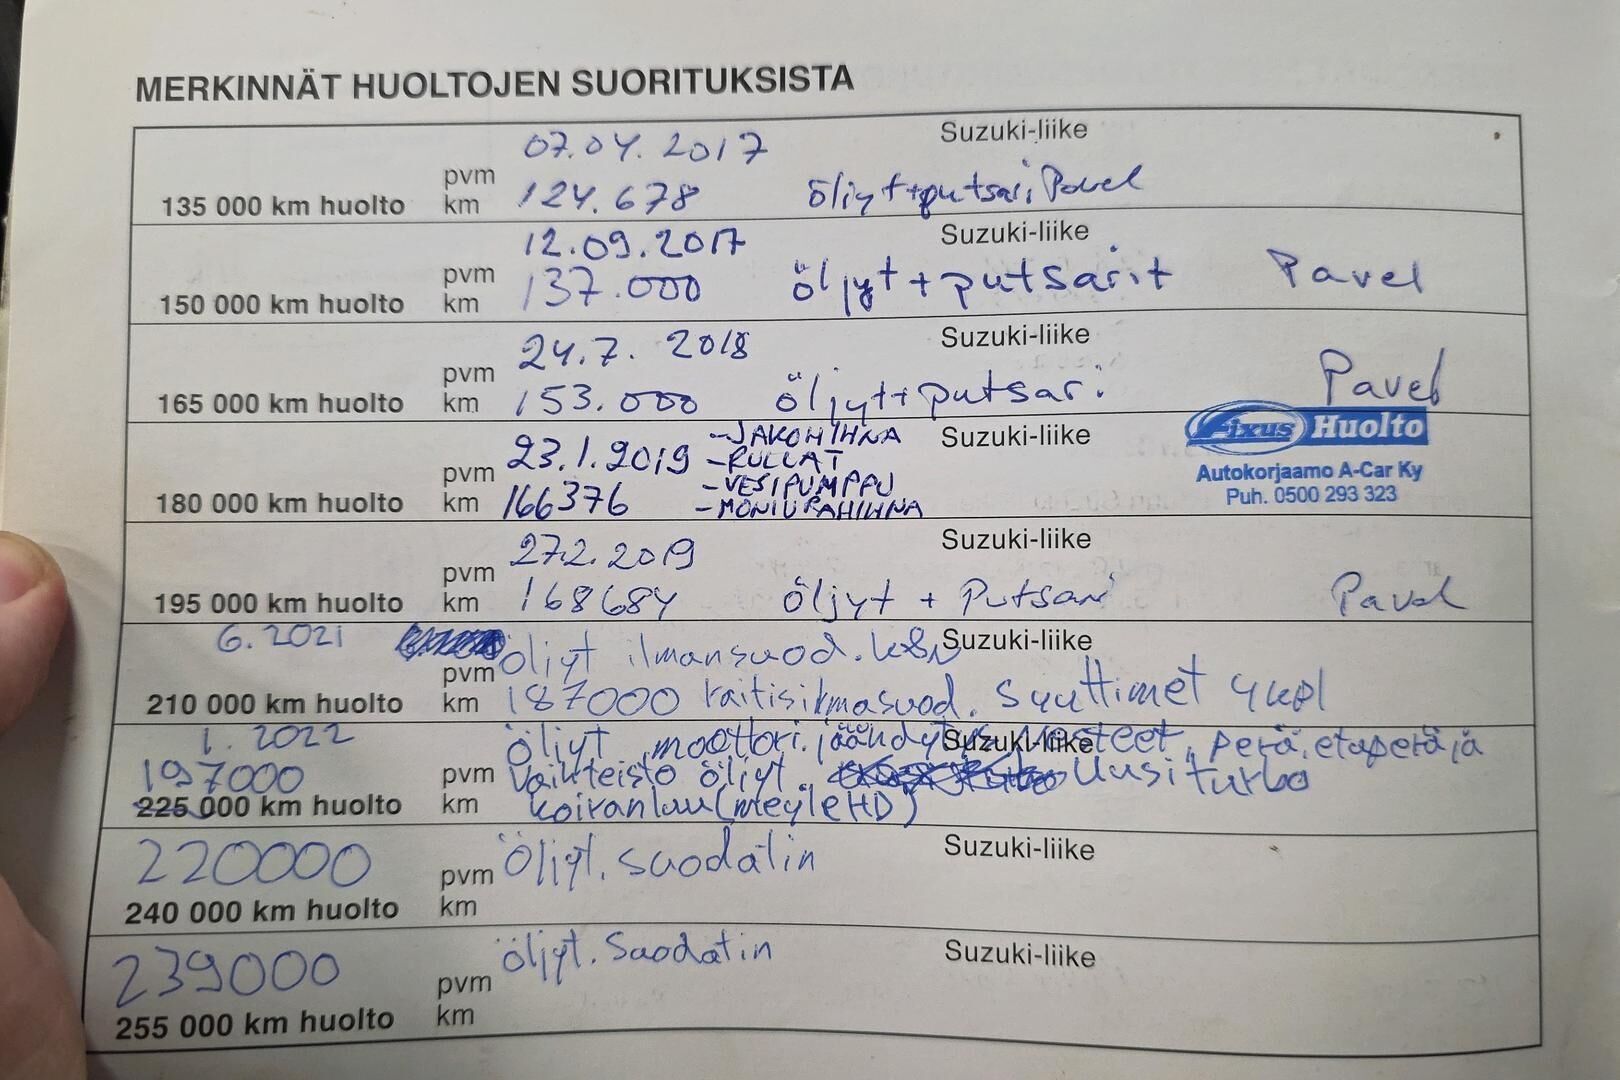 MERKINNÄT HUOLTOJEN SUORITUKSISTA
07.04.2017 Suzuki-liike
pvm
135 000 km huolto km 124.678 öljyt+putsari Pavel
12.09.2017 Suzuki-liike
pvm
150 000 km huolto km 137.000 öljyt+putsarit Pavel
24.7. 2018 Suzuki-liike
pvm
165 000 km huolto km 153.000 öljyt+putsari Pavel
23.1.2019 -JAKOHIHNA Suzuki-liike
pvm -RULLAT
-VESIPUMPPU
180 000 km huolto km 166376 -MONIURAHIHNA
Fixus Huolto
Autokorjaamo A-Car Ky
Puh. 0500 293 323
27.2.2019 Suzuki-liike
pvm
195 000 km huolto km 168684 öljyt + Putsari Pavel
6.2021 öljyt ilmansuod. Suzuki-liike
pvm
210 000 km huolto km 187000 raitisilmasuod. Suuttimet 4kpl
1.2022 öljyt, moottori. jäähdytys nesteet, perä, etuperä ja Suzuki-liike
197000 pvm vaihteisto öljyt. Uusi turbo
225 000 km huolto km koiranluu (meyle HD)
220000 öljyt. suodatin Suzuki-liike
pvm
240 000 km huolto km
239000 öljyt. Suodatin Suzuki-liike
pvm
255 000 km huolto km